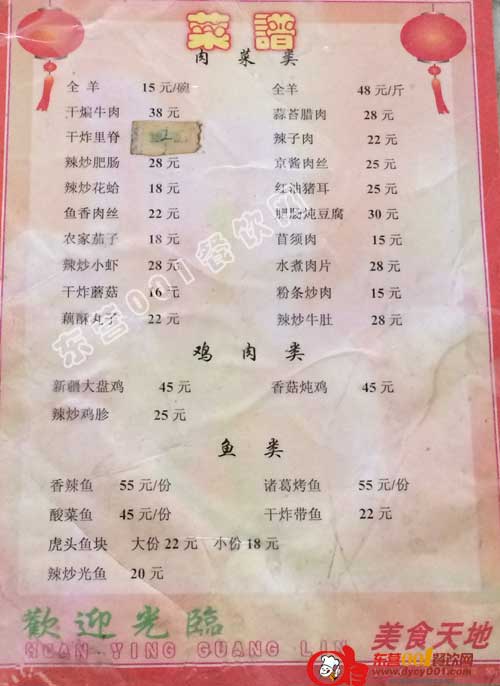 菜譜
肉菜类
全羊 15元/碗 全羊 48元/斤
干煸牛肉 38元 蒜苔腊肉 28元
干炸里脊 辣子肉 22元
辣炒肥肠 28元 京酱肉丝 25元
辣炒花蛤 18元 红油猪耳 25元
鱼香肉丝 22元 肥肠炖豆腐 30元
农家茄子 18元 苜须肉 15元
辣炒小虾 28元 水煮肉片 28元
干炸蘑菇 16元 粉条炒肉 15元
藕酥丸子 22元 辣炒牛肚 28元
鸡肉类
新疆大盘鸡 45元 香菇炖鸡 45元
辣炒鸡胗 25元
鱼类
香辣鱼 55元/份 诸葛烤鱼 55元/份
酸菜鱼 45元/份 干炸带鱼 22元
虎头鱼块 大份22元 小份18元
辣炒光鱼 20元
歡迎光臨
HUAN YING GUANG LIN
美食天地
东营001餐饮网
东营001餐饮网
www.dycy001.com